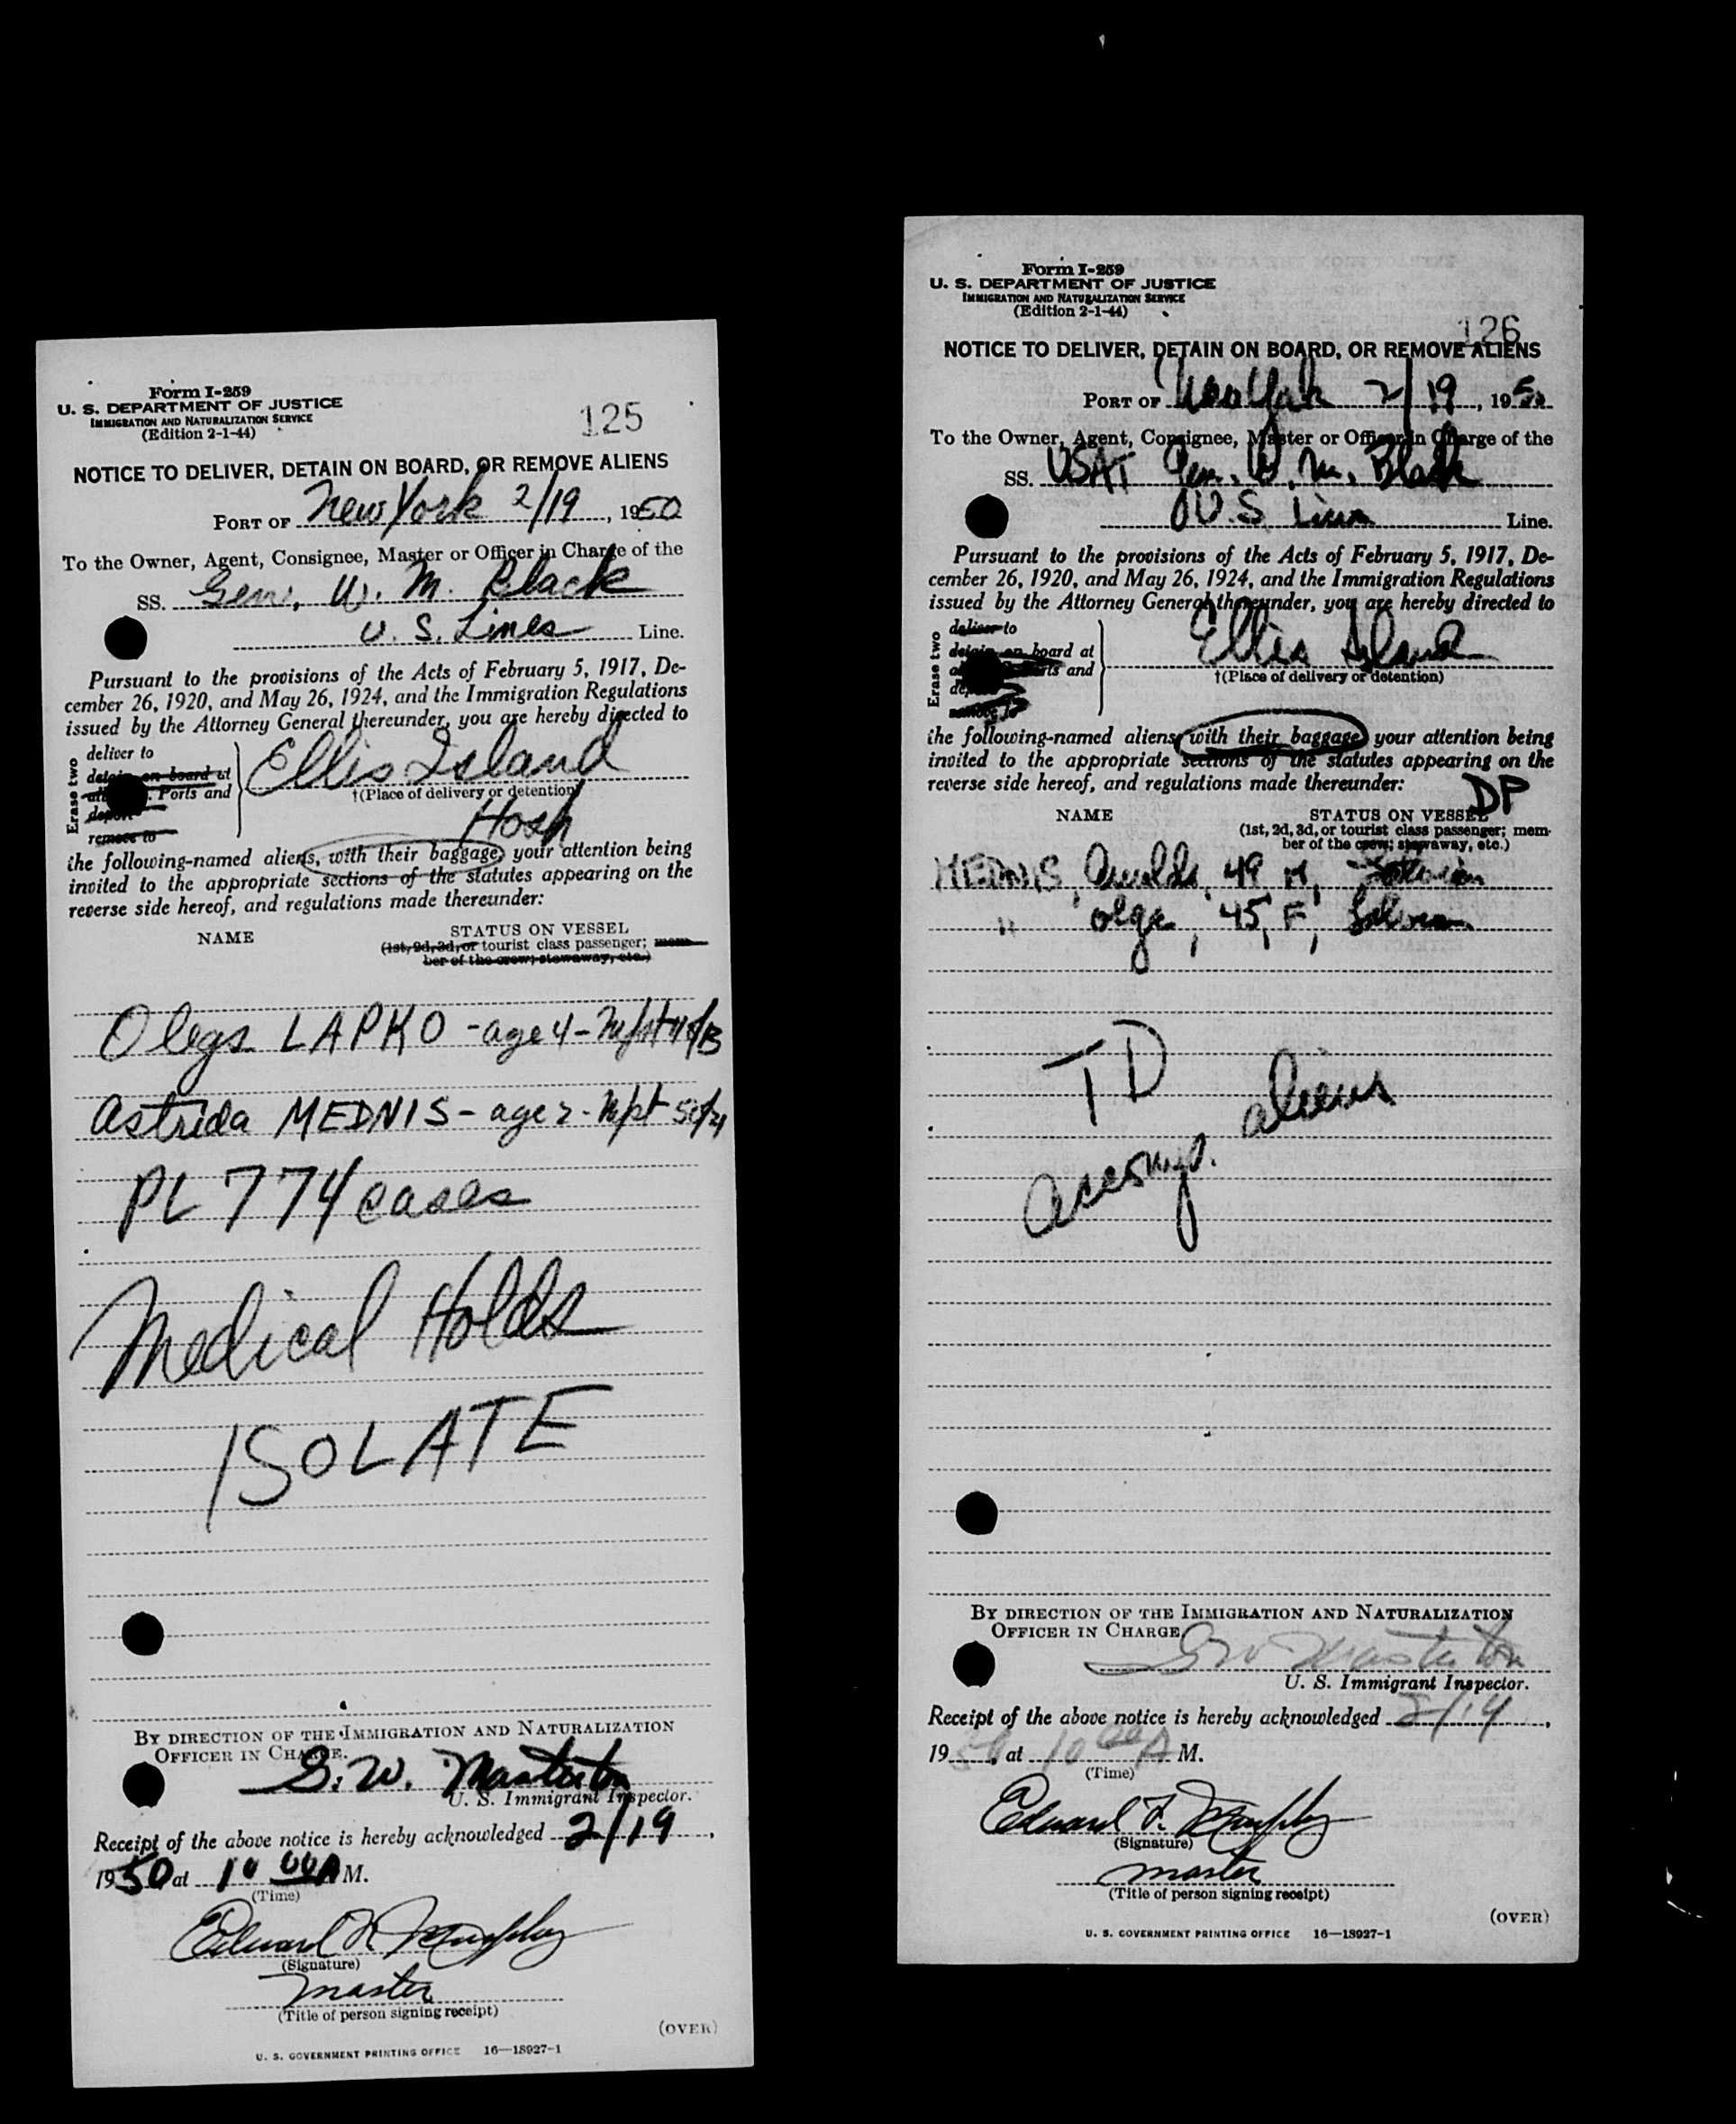 Form I-259
U. S. DEPARTMENT OF JUSTICE
IMMIGRATION AND NATURALIZATION SERVICE
(Edition 2-1-44)
125
NOTICE TO DELIVER, DETAIN ON BOARD, OR REMOVE ALIENS
PORT OF New York 2/19, 1950
To the Owner, Agent, Consignee, Master or Officer in Charge of the
SS. Gen. W. M. Black
U. S. Lines Line.
Pursuant to the provisions of the Acts of February 5, 1917, De-
cember 26, 1920, and May 26, 1924, and the Immigration Regulations
issued by the Attorney General thereunder, you are hereby directed to
Erase two
deliver to
detain on board at
Ports and
deport
remove to
Ellis Island
†(Place of delivery or detention)
Hosp
the following-named aliens, with their baggage, your attention being
invited to the appropriate sections of the statutes appearing on the
reverse side hereof, and regulations made thereunder:
NAME
STATUS ON VESSEL
(1st, 2d, 3d, or tourist class passenger; mem-
ber of the crew; stowaway, etc.)
Olegs LAPKO - age 4 -
Astrida MEDNIS - age 2 -
PL 774 cases
Medical Holds
ISOLATE
BY DIRECTION OF THE IMMIGRATION AND NATURALIZATION
OFFICER IN CHARGE.
G. W. Masterton
U. S. Immigrant Inspector.
Receipt of the above notice is hereby acknowledged 2/19,
1950 at 10 00 A M.
(Time)
Edward F. Murphy
(Signature)
master
(Title of person signing receipt)
(OVER)
U. S. GOVERNMENT PRINTING OFFICE 16—18927-1
Form I-259
U. S. DEPARTMENT OF JUSTICE
IMMIGRATION AND NATURALIZATION SERVICE
(Edition 2-1-44)
126
NOTICE TO DELIVER, DETAIN ON BOARD, OR REMOVE ALIENS
PORT OF New York 2/19, 1950
To the Owner, Agent, Consignee, Master or Officer in Charge of the
SS. USAT Gen. W. M. Black
U.S. Lines Line.
Pursuant to the provisions of the Acts of February 5, 1917, De-
cember 26, 1920, and May 26, 1924, and the Immigration Regulations
issued by the Attorney General thereunder, you are hereby directed to
Erase two
deliver to
detain on board at
Ports and
remove to
Ellis Island
†(Place of delivery or detention)
the following-named aliens, with their baggage, your attention being
invited to the appropriate sections of the statutes appearing on the
reverse side hereof, and regulations made thereunder:
DP
NAME
STATUS ON VESSEL
(1st, 2d, 3d, or tourist class passenger; mem-
ber of the crew; stowaway, etc.)
MEDNIS, 49 M,
" Olga, 45, F,
TD
accomp. aliens
BY DIRECTION OF THE IMMIGRATION AND NATURALIZATION
OFFICER IN CHARGE,
G W Masterton
U. S. Immigrant Inspector.
Receipt of the above notice is hereby acknowledged 2/19,
1950, at 10 00 A M.
(Time)
Edward F. Murphy
(Signature)
master
(Title of person signing receipt)
(OVER)
U. S. GOVERNMENT PRINTING OFFICE 16—18927-1